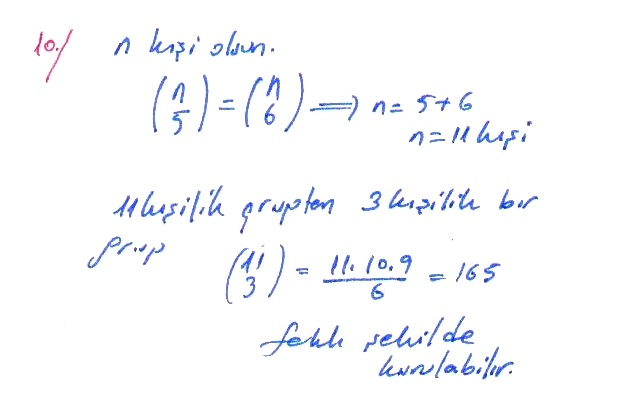 10./ n kişi olsun.
(n 5) = (n 6) ⟹ n = 5+6
n = 11 kişi
11 kişilik gruptan 3 kişilik bir
grup
(11 3) = 11.10.9 / 6 = 165
farklı şekilde
kurulabilir.